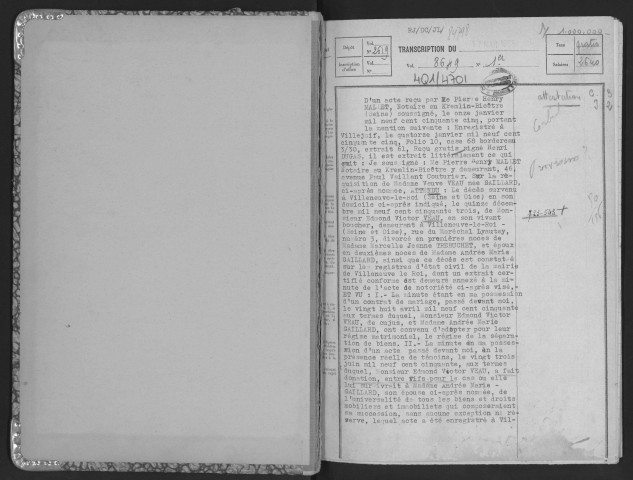 TRANSCRIPTION DU
Dépôt
Vol.
N° 2519
Inscription d'office
Vol.
N°
Vol. 8619 N° 1er
4Q1/4701
Taxe gratis
Salaires
D'un acte reçu par Me Pierre Henry
MALLET, Notaire au Kremlin-Bicêtre
(Seine) soussigné, le onze janvier
mil neuf cent cinquante cinq, portant
la mention suivante : Enregistré à
Villejuif, le quatorze janvier mil neuf cent
cinquante cinq, Folio 10, case 68 bordereau
5/30, extrait 61, Reçu gratis signé Henri
DUGAS, il est extrait littéralement ce qui
suit : Je soussigné : Me Pierre Henry MALLET
Notaire au Kremlin-Bicêtre y demeurant, 46,
avenue Paul Vaillant Couturier. Sur la ré-
quisition de Madame Veuve VEAU née GAILLARD,
ci-après nommée, ATTESTE : Le décès survenu
à Villeneuve-le-roi (Seine et Oise) en son
domicile ci-après indiqué, le quinze décem-
bre mil neuf cent cinquante trois, de Mon-
sieur Edmond Victor VEAU, en son vivant
boucher, demeurant à Villeneuve-le-Roi -
(Seine et Oise), rue du Maréchal Lyautey,
numéro 3, divorcé en premières noces de
Madame Marcelle Jeanne et époux
en deuxièmes noces de Madame Andrée Marie
GAILLARD, ainsi que ce décès est constaté
sur les registres d'état civil de la mairie
de Villeneuve le Roi, dont un extrait cer-
tifié conforme est demeuré annexé à la mi-
nute de l'acte de notoriété ci-après visé.-
ET VU : I.- La minute étant en ma possession
d'un contrat de mariage, passé devant moi,
le vingt huit avril mil neuf cent cinquante
aux termes duquel, Monsieur Edmond Victor
VEAU, de cujus, et Madame Andrée Marie
GAILLARD, ont convenu d'adopter pour leur
régime matrimonial, le régime de la sépara-
tion de biens. II.- La minute en ma posses-
sion d'un acte passé devant moi, en la
présence réelle de témoins, le vingt trois
juin mil neuf cent cinquante, aux termes
duquel, Monsieur Edmond Victor VEAU, a fait
donation, entre vifs pour le cas ou elle
lui survivrait à Madame Andrée Marie -
GAILLARD, son épouse ci-après nommée, de
l'universalité de tous les biens et droits
mobiliers et immobiliers qui composeraient
sa succession, sans aucune exception ni ré-
serve, lequel acte a été enregistré à Vil-
attestation